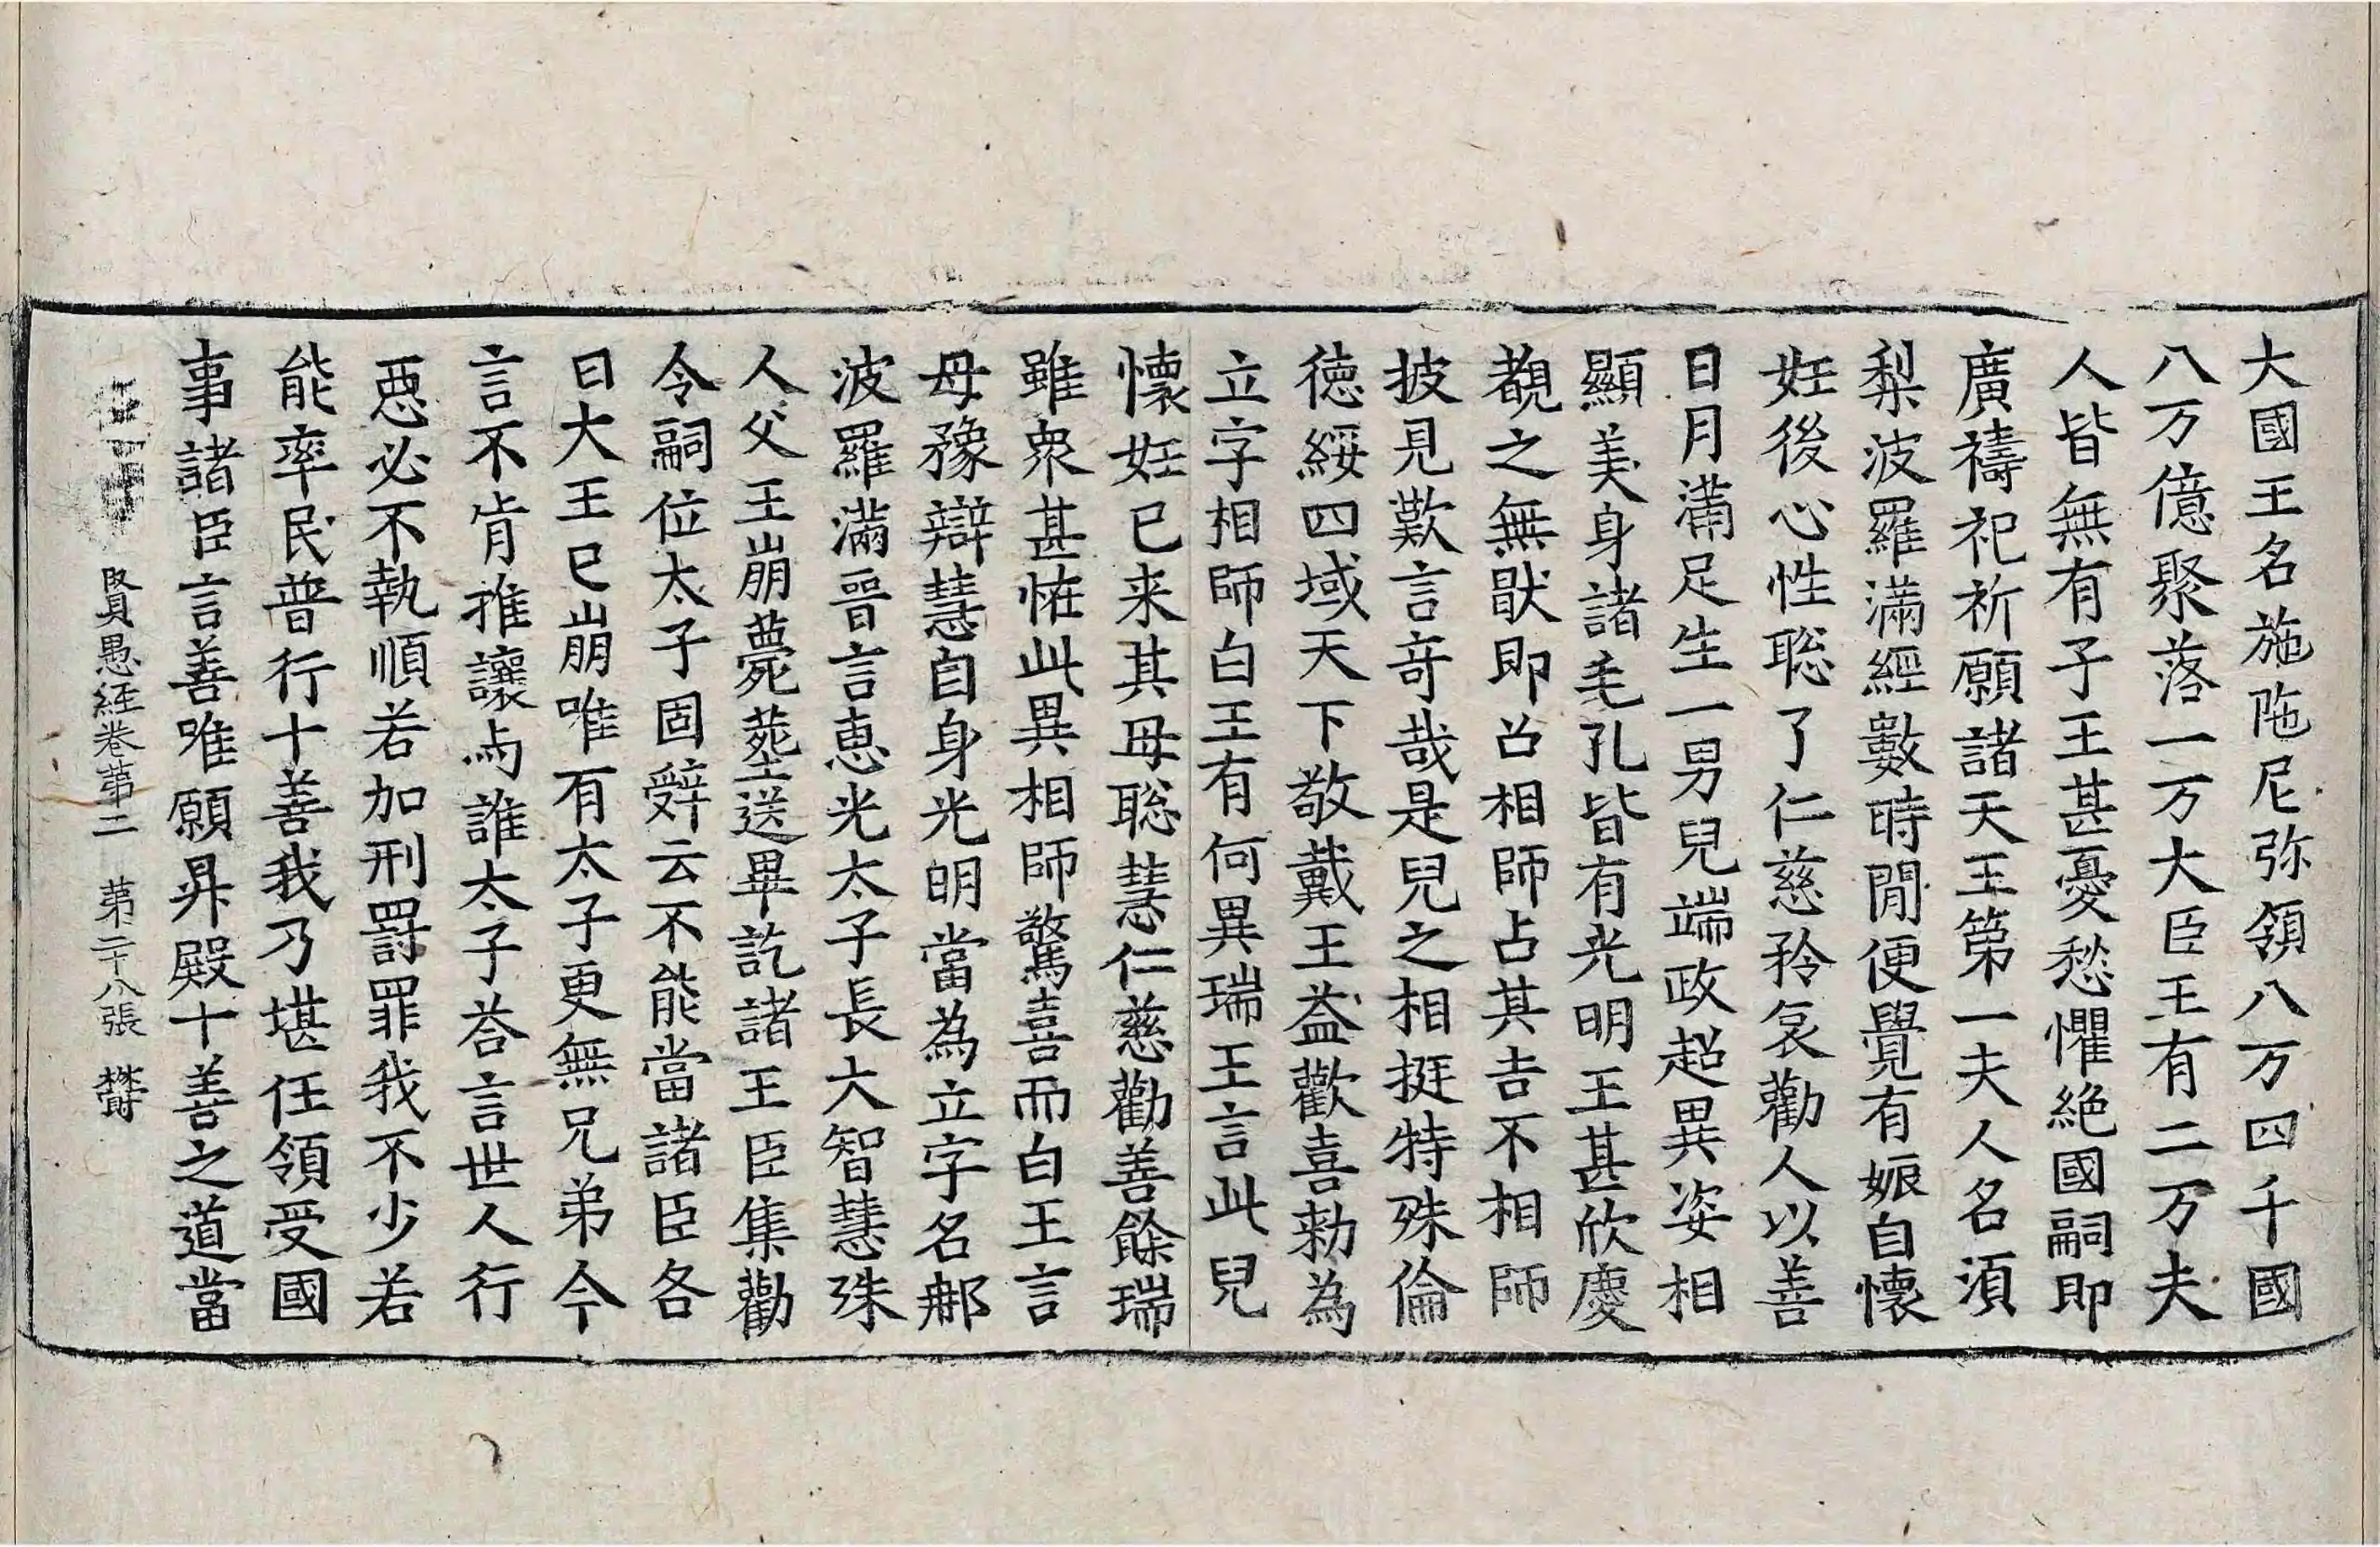 大國王名施陁尼弥領八万四千國
八万億聚落一万大臣王有二万夫
人皆無有子王甚憂愁懼絶國嗣即
廣禱祀祈願諸天王第一夫人名湏
梨波羅滿經數時閒便覺有娠自懷
妊後心性聡了仁慈矜哀勸人以善
日月滿足生一男兒端政超異姿相
顯美身諸毛孔皆有光明王甚欣慶
覩之無猒即召相師占其吉不相師
披見歎言竒哉是兒之相挺特殊倫
徳綏四域天下敬戴王益歡喜勑為
立字相師白王有何異瑞王言此兒
懷妊已来其母聡慧仁慈勸善餘瑞
雖衆甚恠此異相師驚喜而白王言
母豫辯慧自身光明當為立字名郍
波羅滿晉言恵光太子長大智慧殊
人父王崩薨葬送畢訖諸王臣集勸
令嗣位太子固辝云不能當諸臣各
曰大王已崩唯有太子更無兄弟今
言不肯推讓与誰太子荅言世人行
惡必不執順若加刑罸罪我不少若
能率民普行十善我乃堪任領受國
事諸臣言善唯願昇殿十善之道當
賢愚経卷苐二 苐二十八張